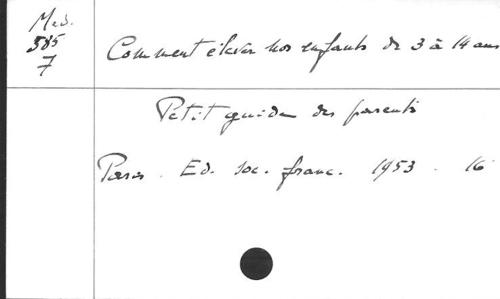 Med.
585
7
Comment élever nos enfants de 3 à 14 ans
Petit guide des parents
Paris. Ed. soc. franc. 1953. 16°